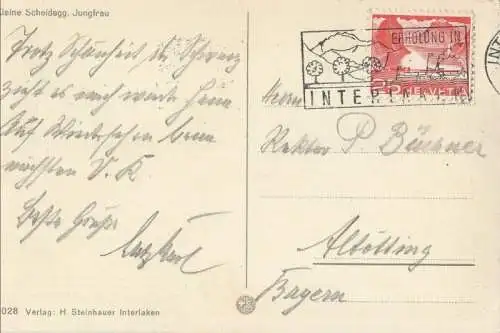 leine Scheidegg. Jungfrau
Trotz Schönheit der Schweiz
zieht es mich wieder heim
Auf Wiedersehen beim
nächsten V. K.
Beste Grüße
028 Verlag: H. Steinhauer Interlaken
ERHOLUNG IN
INTERLAKEN
HELVETIA
INT
Herrn
Rektor P. Büchner
Altötting
Bayern